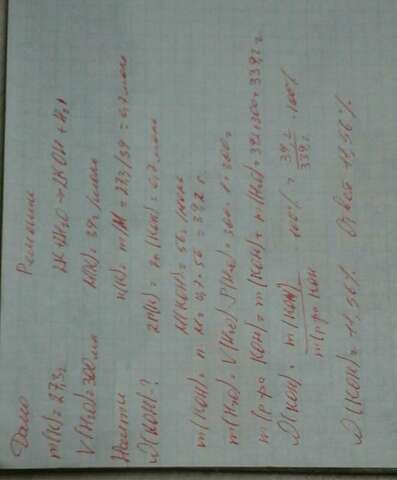 Дано Решение
m(K) = 27,3г 2K+2H2O → 2KOH + H2↑
V(H2O) = 300 мл M(K) = 39 г/моль
Найти n(K) = m/M = 27,3/39 = 0,7 моль
ω(KOH)? 2n(K) = 2n(KOH) = 0,7 моль
M(KOH) = 56 г/моль
m(KOH) = n · M = 0,7 · 56 = 39,2 г.
m(H2O) = V(H2O) · P(H2O) = 300 · 1 = 300г
m р-ра KOH = m(KOH) + m(H2O) = 39,2 + 300 = 339,2 г.
ω(KOH) = m(KOH) / m р-ра KOH · 100% = 39,2 / 339,2 · 100%
ω(KOH) = 11,56% Ответ 11,56%